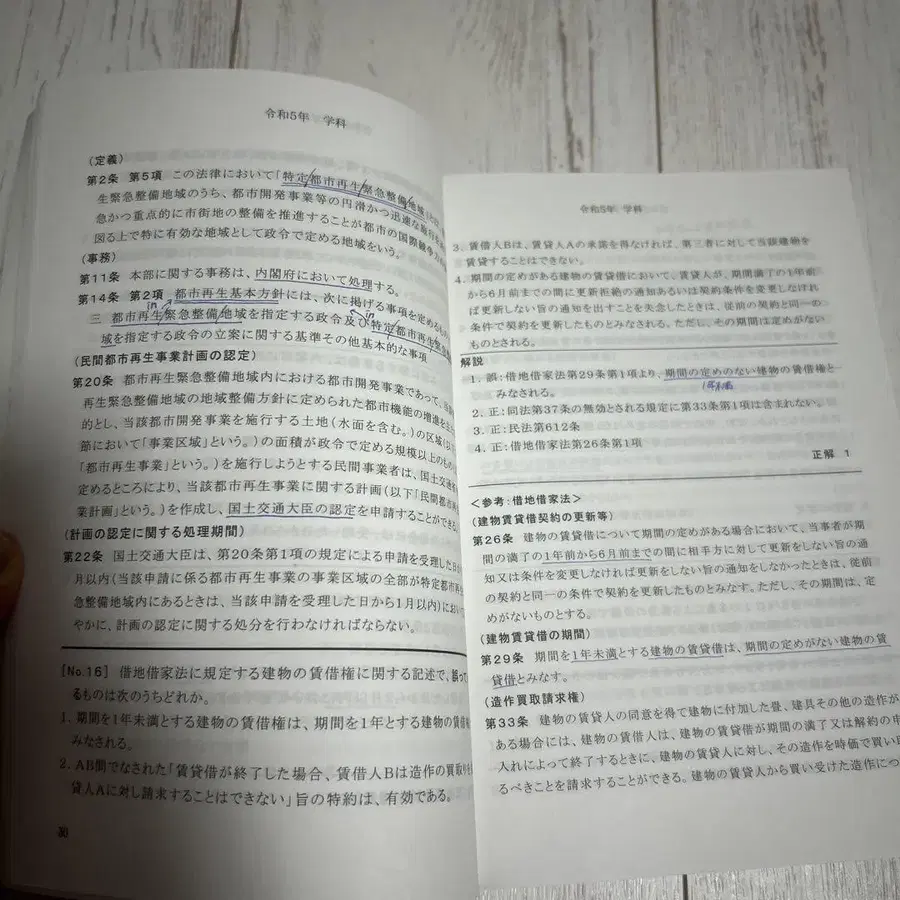 令和5年 学科
(定義)
第2条 第5項 この法律において「特定都市再生緊急整備地域」とは、
生緊急整備地域のうち、都市開発事業等の円滑かつ迅速な施行を
急かつ重点的に市街地の整備を推進することが都市の国際競争力の
図る上で特に有効な地域として政令で定める地域をいう。
(事務)
第11条 本部に関する事務は、内閣府において処理する。
第14条 第2項 都市再生基本方針には、次に掲げる事項を定めるもの
in
in
三 都市再生緊急整備地域を指定する政令及び特定都市再生緊急
域を指定する政令の立案に関する基準その他基本的な事項
(民間都市再生事業計画の認定)
第20条 都市再生緊急整備地域内における都市開発事業であって、当該
再生緊急整備地域の地域整備方針に定められた都市機能の増進を主
的とし、当該都市開発事業を施行する土地(水面を含む。)の区域(以
節において「事業区域」という。)の面積が政令で定める規模以上のもの
「都市再生事業」という。)を施行しようとする民間事業者は、国土交通省
定めるところにより、当該都市再生事業に関する計画(以下「民間都市再
業計画」という。)を作成し、国土交通大臣の認定を申請することができる。
(計画の認定に関する処理期間)
第22条 国土交通大臣は、第20条第1項の規定による申請を受理した日か
月以内(当該申請に係る都市再生事業の事業区域の全部が特定都市再
急整備地域内にあるときは、当該申請を受理した日から1月以内)におい
やかに、計画の認定に関する処分を行わなければならない。
[No.16] 借地借家法に規定する建物の賃借権に関する記述で、誤って
るものは次のうちどれか。
1. 期間を1年未満とする建物の賃借権は、期間を1年とする建物の賃借
みなされる。
2. AB間でなされた「賃貸借が終了した場合、賃借人Bは造作の買取りを
貸人Aに対し請求することはできない」旨の特約は、有効である。
30
令和5年 学科
3. 賃借人Bは、賃貸人Aの承諾を得なければ、第三者に対して当該建物を
賃貸することはできない。
4. 期間の定めがある建物の賃貸借において、賃貸人が、期間満了の1年前
から6月前までの間に更新拒絶の通知あるいは契約条件を変更しなけれ
ば更新しない旨の通知を出すことを失念したときは、従前の契約と同一の
条件で契約を更新したものとみなされる。ただし、その期間は定めがない
ものとされる。
解説
1. 誤:借地借家法第29条第1項より、期間の定めのない建物の賃貸借と
みなされる。
1年未満
2. 正:同法第37条の無効とされる規定に第33条第1項は含まれない。
3. 正:民法第612条
4. 正:借地借家法第26条第1項
正解 1
<参考:借地借家法>
(建物賃貸借契約の更新等)
第26条 建物の賃貸借について期間の定めがある場合において、当事者が期
間の満了の1年前から6月前までの間に相手方に対して更新をしない旨の通
知又は条件を変更しなければ更新をしない旨の通知をしなかったときは、従前
の契約と同一の条件で契約を更新したものとみなす。ただし、その期間は、定
めがないものとする。
(建物賃貸借の期間)
第29条 期間を1年未満とする建物の賃貸借は、期間の定めがない建物の賃
貸借とみなす。
(造作買取請求権)
第33条 建物の賃貸人の同意を得て建物に付加した畳、建具その他の造作が
ある場合には、建物の賃借人は、建物の賃貸借が期間の満了又は解約の申
入れによって終了するときに、建物の賃貸人に対し、その造作を時価で買い取
るべきことを請求することができる。建物の賃貸人から買い受けた造作につ